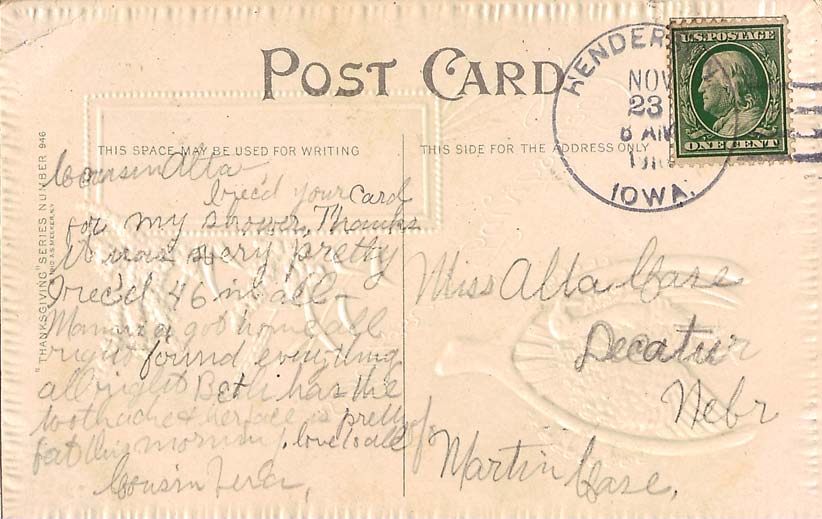 POST CARD
THIS SPACE MAY BE USED FOR WRITING
THIS SIDE FOR THE ADDRESS ONLY
"THANKSGIVING" SERIES NUMBER 946
U.S. POSTAGE
ONE CENT
HENDER
NOV
23
8 AM
IOWA.
Cousin Alta
I rec'd your card
for my shower, Thanks
it was very pretty
I rec'd 46 in all -
Mamma got home all
right found everything
all right Beth has the
toothache & her face is pretty
fat this morning, love to all
Cousin
Miss Alta Case
Decatur
Nebr
c/o
Martin Case,